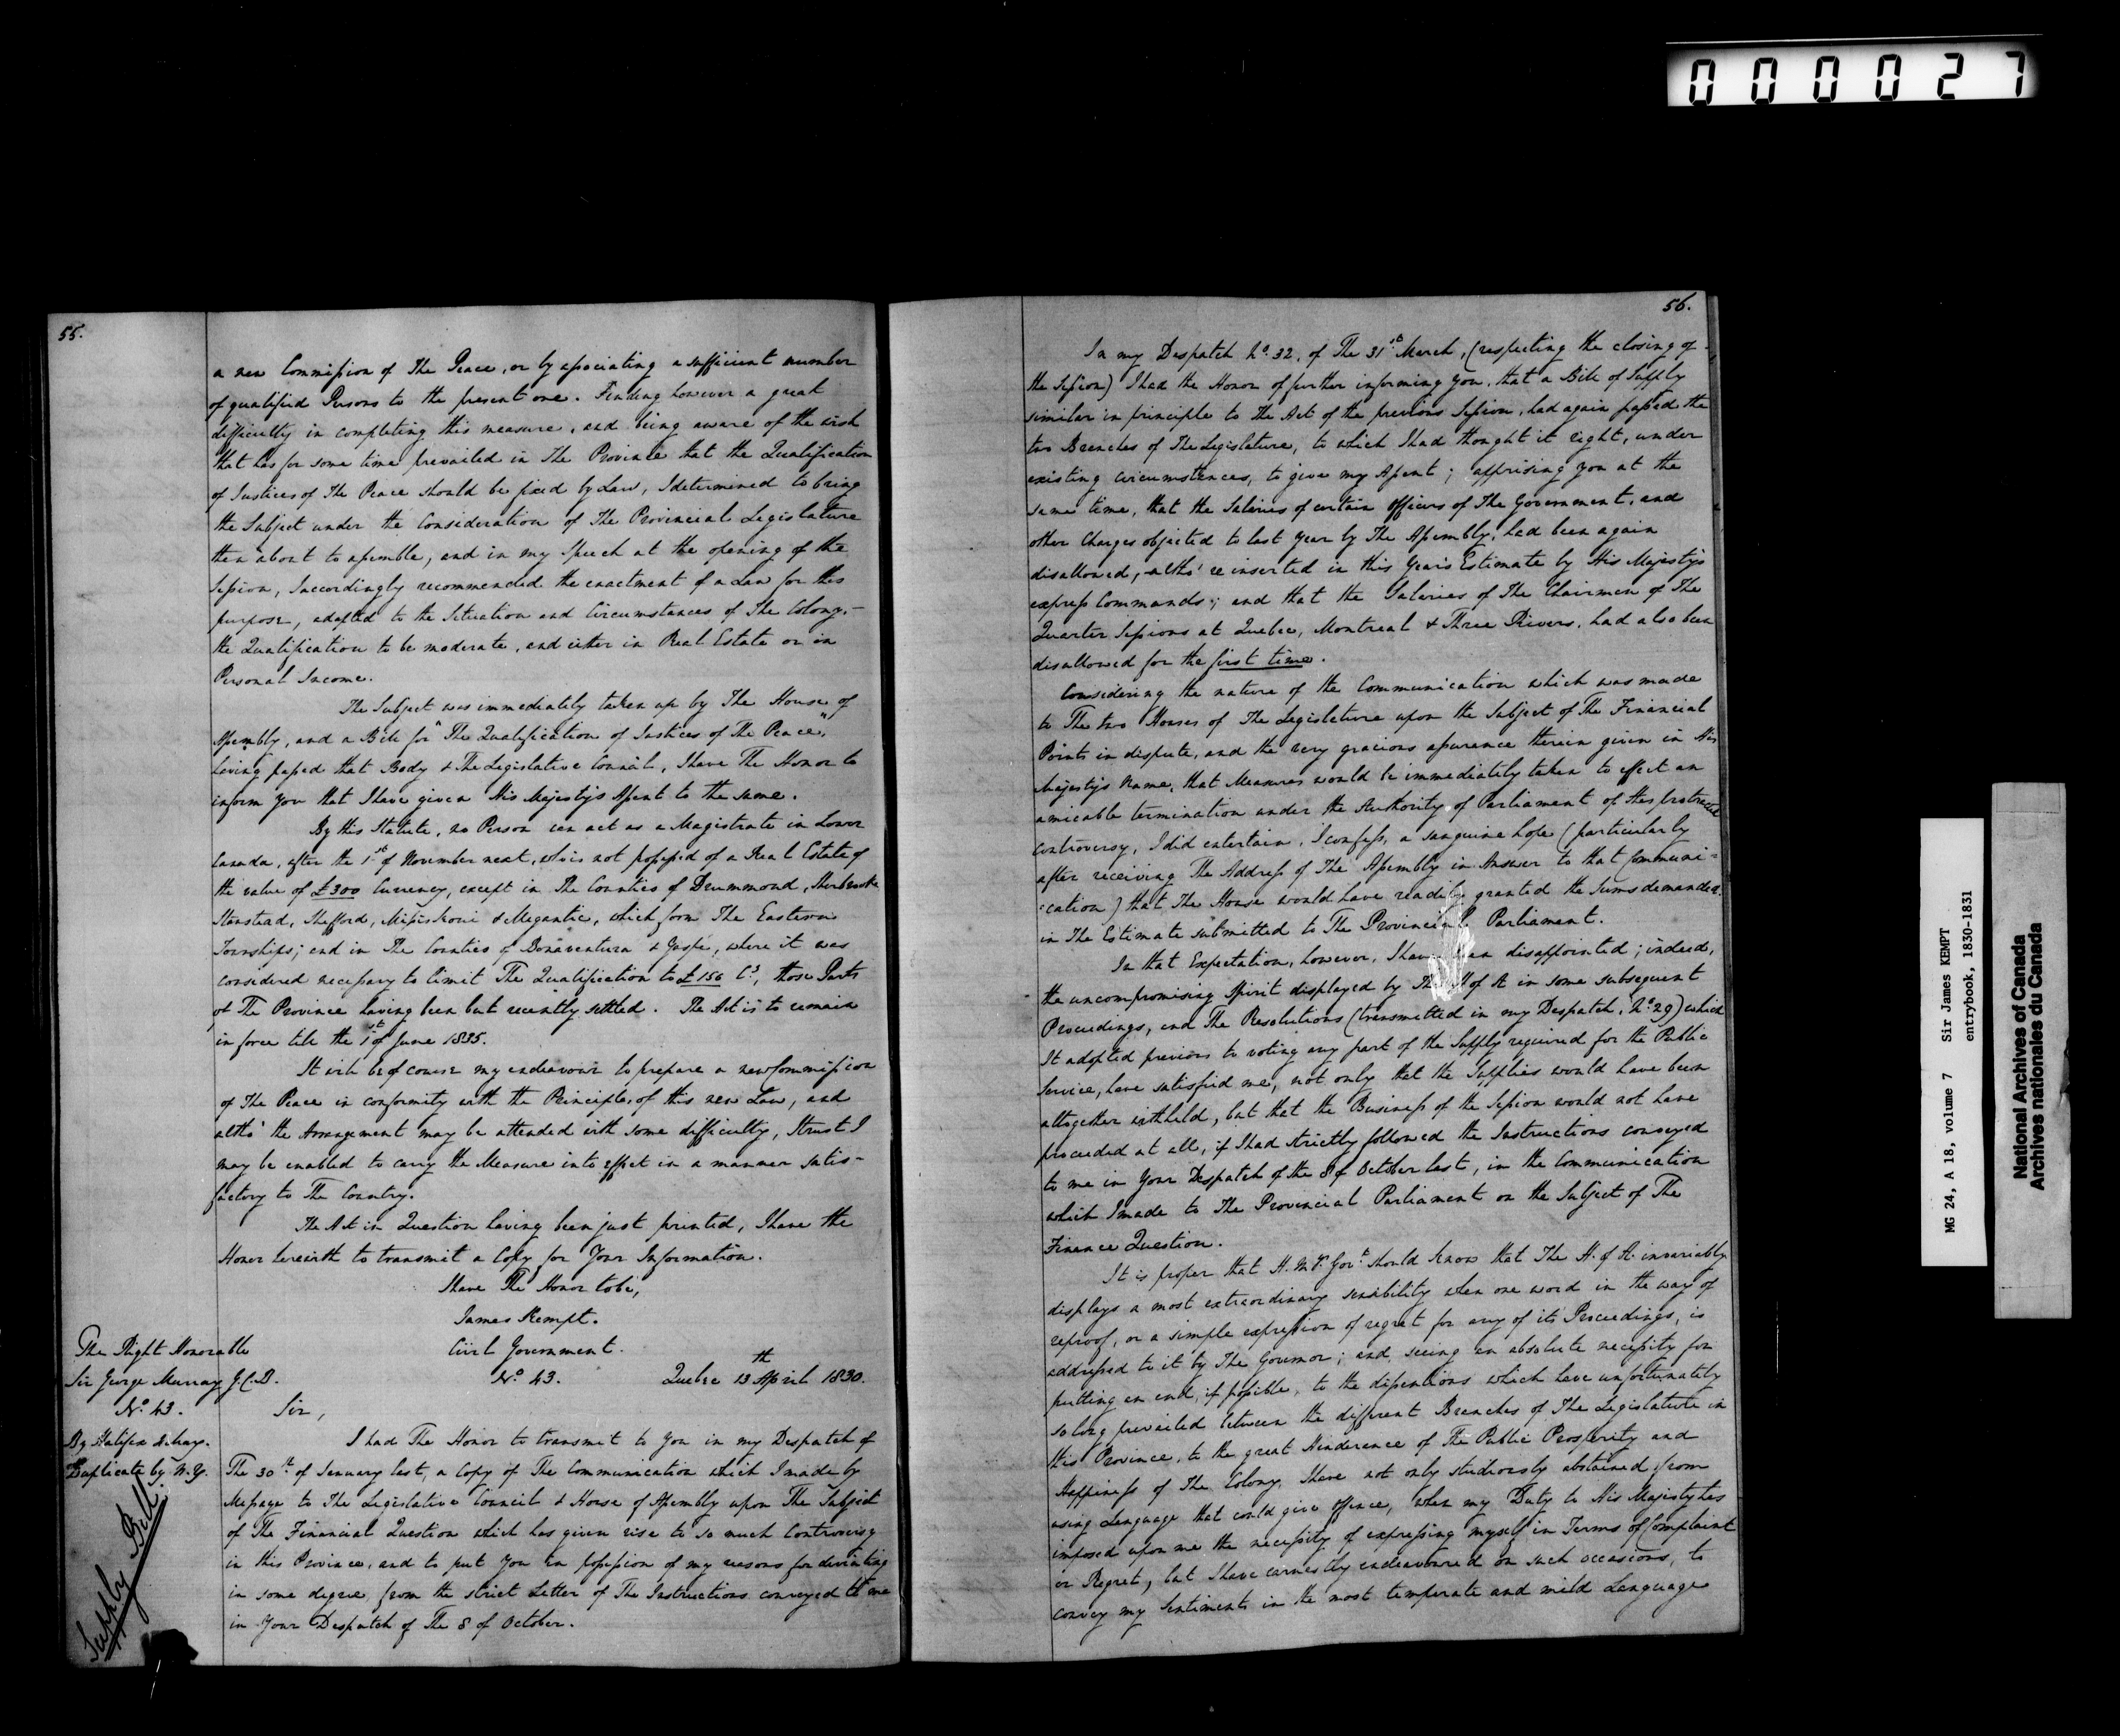 000027
55.
a new Commission of The Peace, or by associating a sufficient number
of qualified Persons to the present one. Finding however a great
difficulty in completing this measure, and being aware of the wish
that has for some time prevailed in The Province that the Qualification
of Justices of The Peace should be fixed by Law, I determined to bring
the Subject under the Consideration of The Provincial Legislature
then about to assemble, and in my Speech at the opening of the
Session, I accordingly recommended the enactment of a Law for this
purpose, adapted to the Situation and Circumstances of The Colony,-
the Qualification to be moderate, and either in Real Estate or in
Personal Income.
The Subject was immediately taken up by The House of
Assembly, and a Bill for "The Qualification of Justices of The Peace",
having passed that Body & The Legislative Council, I have The Honor to
inform you that I have given His Majesty's Assent to the same.
By this Statute, no Person can act as a Magistrate in Lower
Canada, after the 1st of November next, who is not possessed of a Real Estate of
the value of £300 Currency, except in The Counties of Drummond, Sherbrooke
Stanstead, Shefford, Missiskoui & Megantic, which form The Eastern
Townships; and in The Counties of Bonaventura & Gaspé, where it was
considered necessary to limit The Qualification to £150 Cy, those Parts
of The Province having been but recently settled. The Act is to remain
in force till the 1st of June 1835.
It will be of course my endeavour to prepare a new Commission
of The Peace in conformity with the Principles of this new Law, and
altho' the Arrangement may be attended with some difficulty, I trust I
may be enabled to carry the Measure into effect in a manner satis-
factory to The Country.
The Act in Question having been just printed, I have the
Honor herewith to transmit a Copy for Your Information.
I have The Honor to be,
James Kempt.
The Right Honorable
Sir George Murray G.C.B.
Civil Government.
No. 43. Quebec 13th April 1830.
No. 43.
By Halifax
Duplicate by N.Y.
Supply Bill
Sir,
I had The Honor to transmit to You in my Despatch of
The 30th of January last, a Copy of The Communication which I made by
Message to The Legislative Council & House of Assembly upon The Subject
of The Financial Question which has given rise to so much Controversy
in this Province, and to put You in possession of my reasons for deviating
in some degree from the strict Letter of The Instructions conveyed to me
in Your Despatch of The 8 of October.
56.
In my Despatch No. 32, of The 31st March, (respecting the closing of
the Session) I had the Honor of further informing You, that a Bill of Supply
similar in principle to The Act of the previous Session, had again passed the
two Branches of The Legislature, to which I had thought it right, under
existing circumstances, to give my Assent; apprising you at the
same time, that the Salaries of certain Officers of The Government, and
other Charges objected to last year by The Assembly, had been again
disallowed, altho' reinserted in this Year's Estimate by His Majesty's
express Commands; and that the Salaries of The Chairmen of The
Quarter Sessions at Quebec, Montreal & Three Rivers, had also been
disallowed for the first time.
Considering the nature of the Communication which was made
to The two Houses of The Legislature upon the Subject of The Financial
Points in dispute, and the very gracious assurance therein given in His
Majesty's Name, that Measures would be immediately taken to effect an
amicable termination under the Authority of Parliament of this protracted
controversy, I did entertain, I confess, a sanguine hope (particularly
after receiving The Address of The Assembly in Answer to that Communi=
=cation) that The House would have readily granted the Sums demanded
in The Estimate submitted to The Provincial Parliament.
In that Expectation, however, I have been disappointed; indeed,
the uncompromising Spirit displayed by The H of A in some subsequent
Proceedings, and The Resolutions (transmitted in my Despatch, No. 29) which
It adopted previous to voting any part of the Supply required for the Public
Service, have satisfied me, not only that the Supplies would have been
altogether withheld, but that the Business of the Session would not have
proceeded at all, if I had strictly followed the Instructions conveyed
to me in Your Despatch of the 8 of October last, in the Communication
which I made to The Provincial Parliament on the Subject of The
Finance Question.
It is proper that H.M's Govt should know that The H. of A. invariably
displays a most extraordinary sensibility when one word in the way of
reproof, or a simple expression of regret for any of its Proceedings, is
addressed to it by The Governor; and, seeing an absolute necessity for
putting an end, if possible, to the dissentions which have unfortunately
so long prevailed between the different Branches of The Legislature in
this Province, to the great Hinderence of The Public Prosperity and
Happiness of The Colony, I have not only studiously abstained from
using Language that could give offence, when my Duty to His Majesty has
imposed upon me the necessity of expressing myself in Terms of Complaint
or Regret, but I have earnestly endeavoured on such occasions, to
convey my Sentiments in the most temperate and mild Language
MG 24, A 18, volume 7 Sir James KEMPT
entrybook, 1830-1831
National Archives of Canada
Archives nationales du Canada